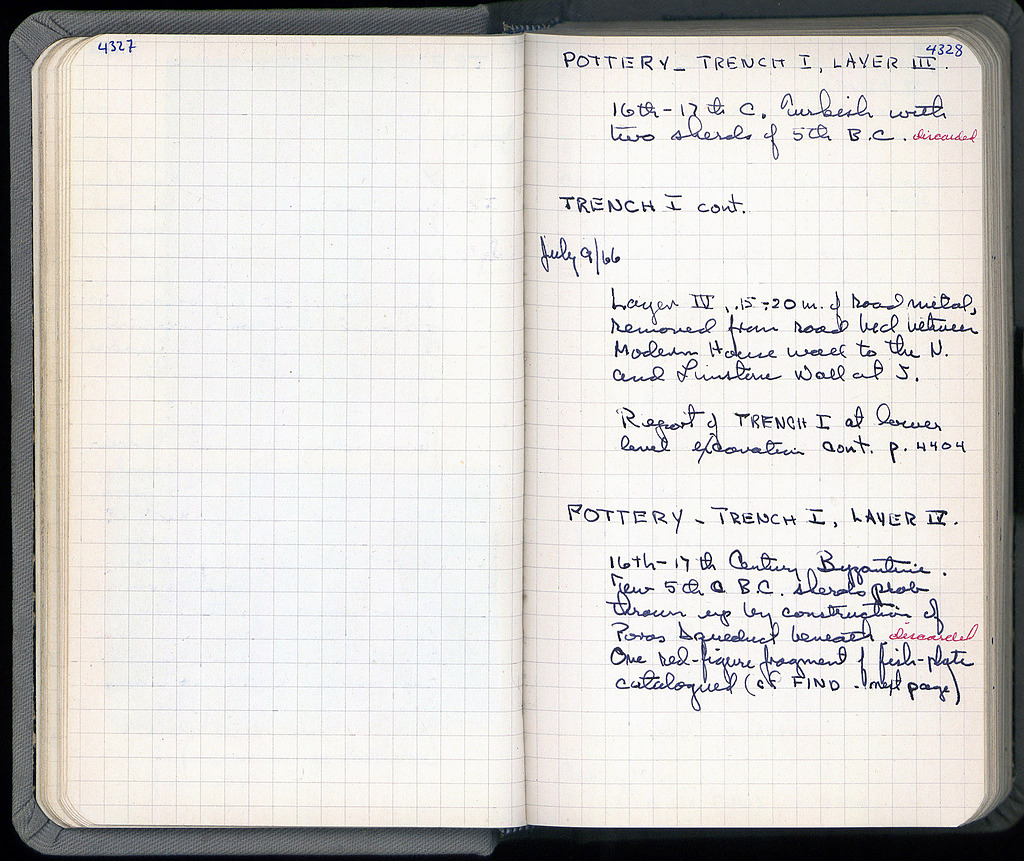 4327
4328
POTTERY - TRENCH I, LAYER III.
16th-17th C. Turkish with
two sherds of 5th B.C. discarded
TRENCH I cont.
July 9/66
Layer IV, .15-.20 m. of road metal,
removed from road bed between
Modern House wall to the N.
and Limestone Wall at S.
Report of TRENCH I at lower
level excavation cont. p. 4404
POTTERY - TRENCH I, LAYER IV.
16th-17th Century Byzantine.
Few 5th C B.C. sherds prob
thrown up by construction of
Poros Aqueduct beneath. discarded
One red-figure fragment of fish-plate
catalogued (cf FIND - next page)